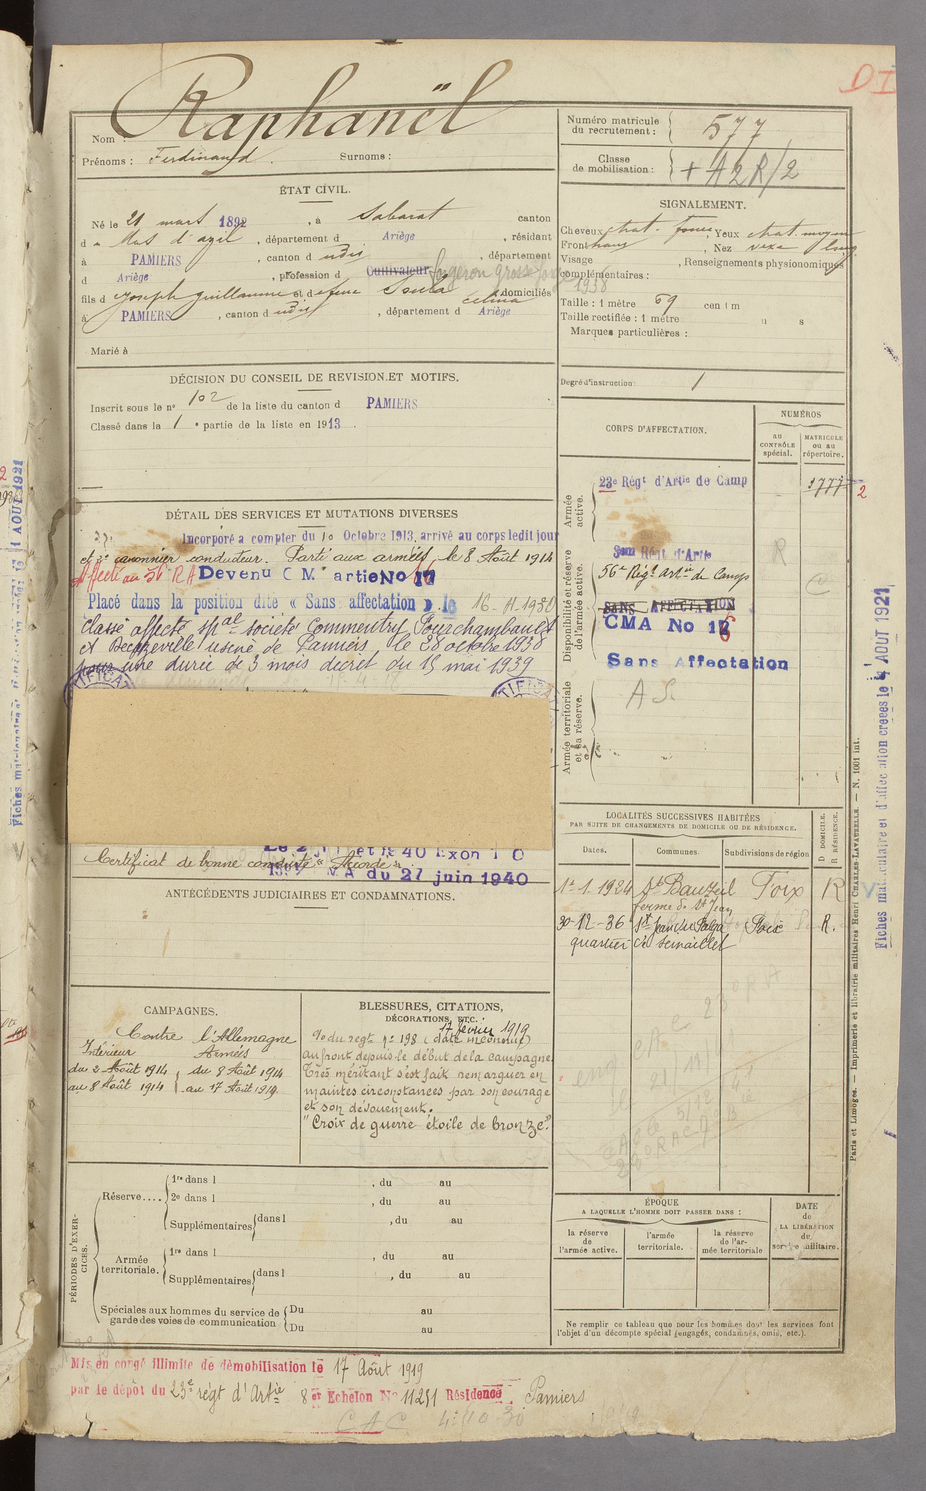 D I
Nom : Raphanël
Prénoms : Ferdinand. Surnoms :
Numéro matricule du recrutement : 577
Classe de mobilisation : + A2R/2
ÉTAT CIVIL.
Né le 21 mars 1892, à Sabarat canton
d u Mas d'azil, département d Ariège, résidant
à PAMIERS, canton d udis, département
d Ariège, profession d Cultivateur forgeron grosse forge
fils d Joseph Guillaume et d efeue Soula Celina domiciliés
à PAMIERS, canton d udis, département d Ariège
Marié à
SIGNALEMENT.
Cheveux chat. foncé, Yeux chat. moyen
Front haut, Nez vexe long
Visage , Renseignements physionomiques
complémentaires : 1938
Taille : 1 mètre 69 centim
Taille rectifiée : 1 mètre " s
Marques particulières :
Degré d'instruction : 1
DÉCISION DU CONSEIL DE REVISION ET MOTIFS.
Inscrit sous le n° 102 de la liste du canton d PAMIERS
Classé dans la 1e partie de la liste en 1913.
DÉTAIL DES SERVICES ET MUTATIONS DIVERSES
Incorporé a compter du 10 Octobre 1913, arrivé au corps ledit jour
et 2e canonnier conducteur. Parti aux armées, le 8 Août 1914
Affecté au 56e RA Devenu C M artie No 16
Placé dans la position dite « Sans affectation » le 16-11-1930
Classé affecté spal société Commentry Fourchambault
et Decazeville usine de Pamiers le 28 octobre 1938
pour une durée de 3 mois décret du 15 mai 1939
Certificat de bonne conduite "Accordé".
N A du 27 juin 1940
ANTÉCÉDENTS JUDICIAIRES ET CONDAMNATIONS.
CORPS D'AFFECTATION.
NUMÉROS
au CONTRÔLE spécial.
MATRICULE ou au répertoire.
Armée active.
23e Régt d'Artie de Camp
1777 2
Disponibilité et réserve de l'armée active.
56e Régt Artie de Camp
R
SANS AFFECTATION
CMA No 16
Sans Affectation
Armée territoriale et sa réserve.
A S
LOCALITÉS SUCCESSIVES HABITÉES
PAR SUITE DE CHANGEMENTS DE DOMICILE OU DE RÉSIDENCE.
Dates. Communes. Subdivisions de région
D DOMICILE. R RÉSIDENCE.
1er 1. 1924 St Bauzeil Foix R
ferme de St Jean
30-12-36 St Jean du Falga Foix R.
quartier de
CAMPAGNES.
Contre l'Allemagne
Intérieur Armées
du 2 Août 1914 du 8 Août 1914
au 8 Août 1914 au 17 Août 1919.
BLESSURES, CITATIONS,
DÉCORATIONS, ETC.
17 février 1919
O. du régt n° 198 (date inconnue)
au front depuis le début de la campagne
Très méritant s'est fait remarquer en
maintes circonstances par son courage
et son dévouement.
"Croix de guerre étoile de bronze."
PÉRIODES D'EXERCICES.
Réserve.... 1re dans l , du au
2e dans l , du au
Supplémentaires dans l , du au
Armée territoriale. 1re dans l , du au
Supplémentaires dans l , du au
Spéciales aux hommes du service de garde des voies de communication Du au
Du au
ÉPOQUE
A LAQUELLE L'HOMME DOIT PASSER DANS :
la réserve de l'armée active.
l'armée territoriale.
la réserve de l'armée territoriale
DATE de LA LIBÉRATION du service militaire.
Ne remplir ce tableau que pour les hommes dont les services font
l'objet d'un décompte spécial (engagés, condamnés, omis, etc.).
Mis en congé illimité de démobilisation le 17 Août 1919
par le dépôt du 23e régt d'Artie 8er Echelon N° 11251 Résidence Pamiers
CAC 4-10-30
Paris et Limoges. — Imprimerie et librairie militaires Henri CHARLES-LAVAUZELLE. — N. 1001 int.
Fiches matriculaire et d'affectation créées le 4 AOUT 1921